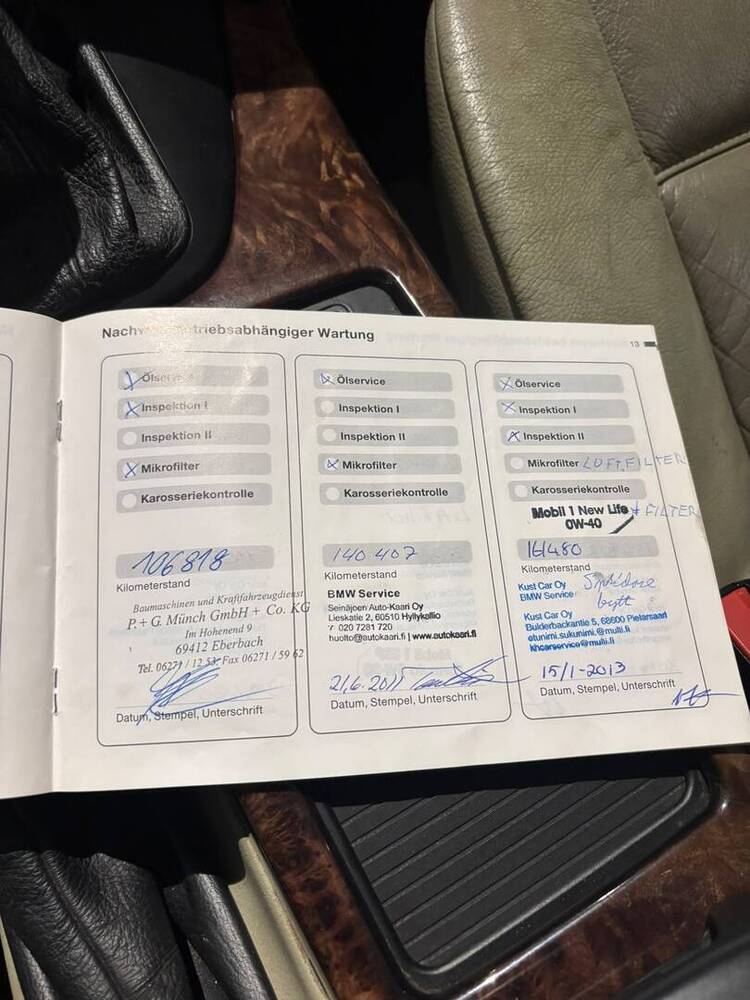 Nachw triebsabhängiger Wartung
13
Ölservice
Inspektion I
Inspektion II
Mikrofilter
Karosseriekontrolle
106818
Kilometerstand
Baumaschinen und Kraftfahrzeugdienst
P. + G. Münch GmbH + Co. KG
Im Hohenend 9
69412 Eberbach
Tel. 06271 / 12 53, Fax 06271 / 59 62
Datum, Stempel, Unterschrift
Ölservice
Inspektion I
Inspektion II
Mikrofilter
Karosseriekontrolle
140 407
Kilometerstand
BMW Service
Seinäjoen Auto-Kaari Oy
Lieskatie 2, 60510 Hyllykallio
020 7281 720
huolto@autokaari.fi | www.autokaari.fi
21.6.2011
Datum, Stempel, Unterschrift
Ölservice
Inspektion I
Inspektion II
Mikrofilter LUFT.FILTER
Karosseriekontrolle
Mobil 1 New Life + FILTER
0W-40
161480
Kilometerstand
Kust Car Oy
BMW Service
bytt
Kust Car Oy
Bulderbackantie 5, 68600 Pietarsaari
etunimi.sukunimi.@multi.fi
khcarservice@multi.fi
15/1-2013
Datum, Stempel, Unterschrift